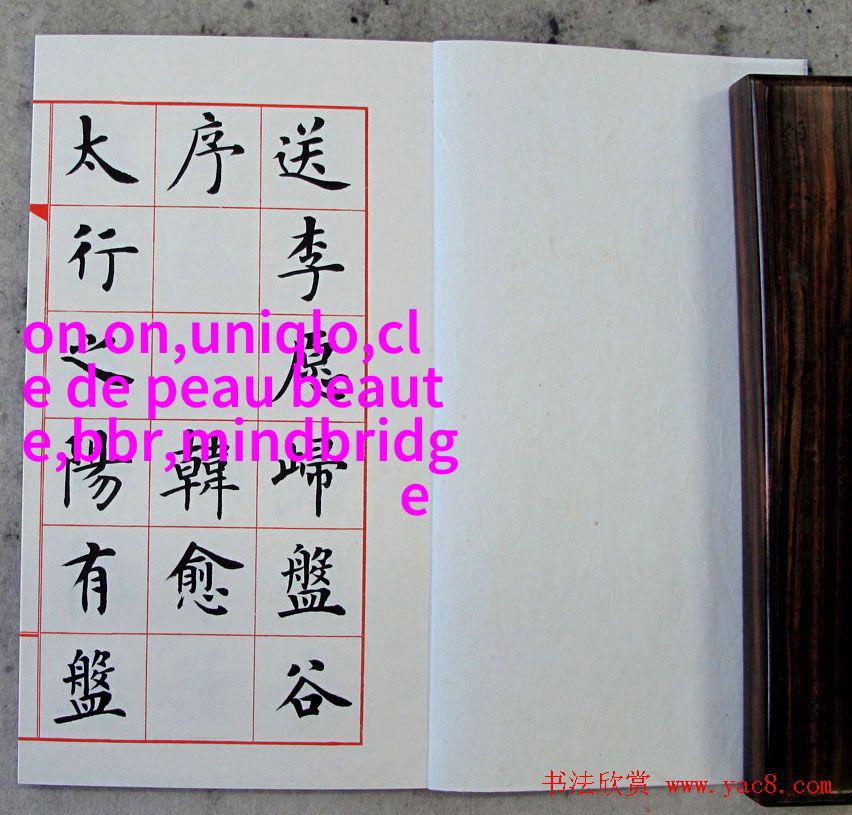 送李愿歸盤谷
序 韓愈
太行之陽有盤
on on,uniqlo,cl
e de peau beaut
e,bbr,mindbridg
e
书法欣赏 www.yac8.com